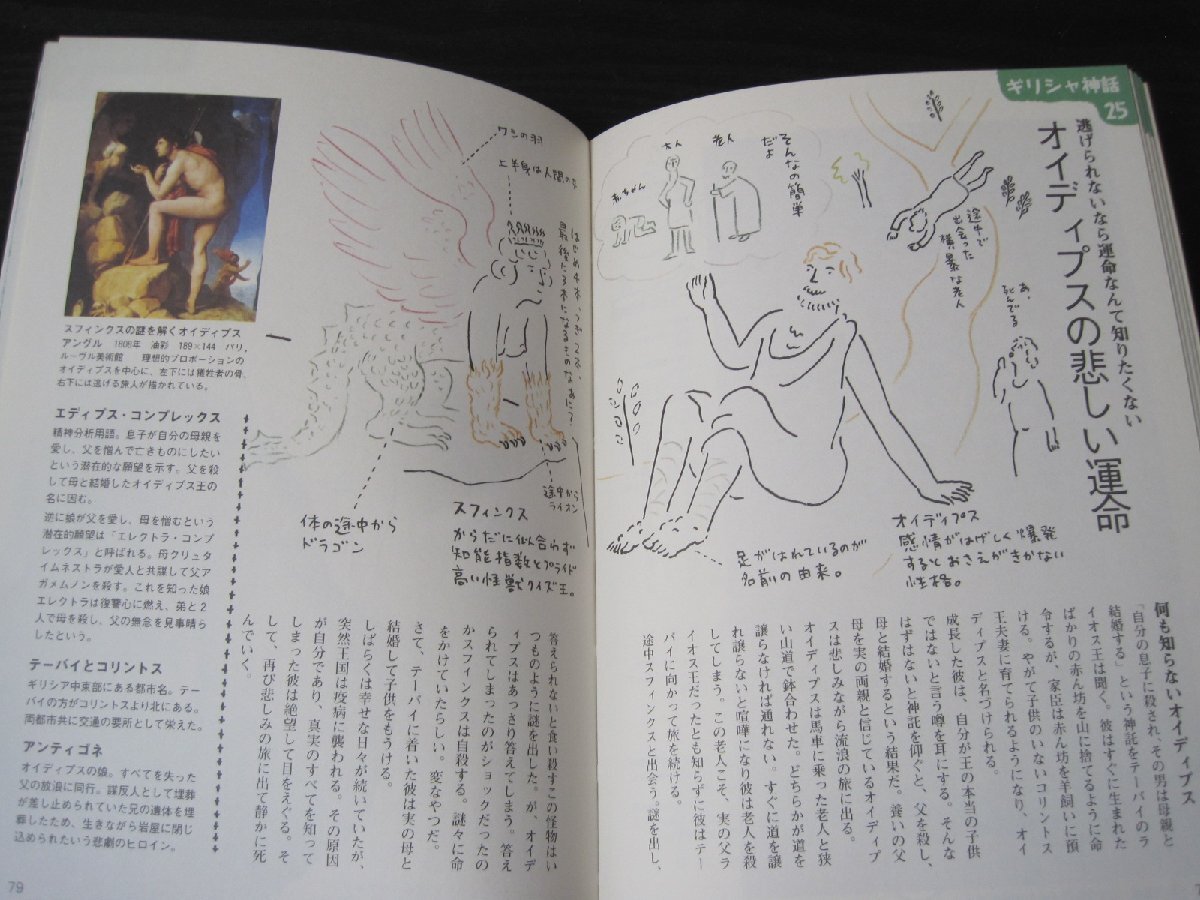 ギリシャ神話
25
逃げられないなら運命なんて知りたくない
オイディプスの悲しい運命
そんなの簡単
だよ
老人
大人
赤ちゃん
途中で
出会った
横暴な老人
あ、
死んでる
オイディプス
感情がはげしく爆発
するとおさえがきかない
性格。
足がはれているのが
名前の由来。
何も知らないオイディプス
「自分の息子に殺され、その男は母親と
結婚する」という神託をテーバイのラ
イオス王は聞く。彼はすぐに生まれた
ばかりの赤ん坊を山に捨てるように命
令するが、家臣は赤ん坊を羊飼いに預
ける。やがて子供のいないコリントス
王夫妻に育てられるようになり、オイ
ディプスと名づけられる。
成長した彼は、自分が王の本当の子供
ではないと言う噂を耳にする。そんな
はずはないと神託を仰ぐと、父を殺し、
母と結婚するという結果だ。養いの父
母を実の両親と信じているオイディプ
スは悲しみながら流浪の旅に出る。
オイディプスは馬車に乗った老人と狭
い山道で鉢合わせた。どちらかが道を
譲らなければ通れない。すぐに道を譲
れ譲らないと喧嘩になり彼は老人を殺
してしまう。この老人こそ、実の父ラ
イオス王だったとも知らずに彼はテー
バイに向かって旅を続ける。
途中スフィンクスと出会う。謎を出し、
ワシの羽
上半身は人間の女
はじめ4本、つぎ2本、
最後に3本になるものなぁに?
途中から
ライオン
体の途中から
ドラゴン
スフィンクス
からだに似合らず
知能指数とプライド
高い怪獣クイズ王。
答えられないと食い殺すこの怪物はい
つものように謎を出した。が、オイデ
ィプスはあっさり答えてしまう。答え
られてしまったのがショックだったの
かスフィンクスは自殺する。謎々に命
をかけていたらしい。変なやつだ。
さて、テーバイに着いた彼は実の母と
結婚して子供をもうける。
しばらくは幸せな日々が続いていたが、
突然王国は疫病に襲われる。その原因
が自分であり、真実のすべてを知って
しまった彼は絶望して目をえぐる。そ
して、再び悲しみの旅に出て静かに死
んでいく。
スフィンクスの謎を解くオイディプス
アングル 1808年 油彩 189×144 パリ、
ルーヴル美術館 理想的プロポーションの
オイディプスを中心に、左下には犠牲者の骨、
右下には逃げる旅人が描かれている。
エディプス・コンプレックス
精神分析用語。息子が自分の母親を
愛し、父を憎んで亡きものにしたい
という潜在的な願望を示す。父を殺
して母と結婚したオイディプス王の
名に因む。
逆に娘が父を愛し、母を憎むという
潜在的願望は「エレクトラ・コンプ
レックス」と呼ばれる。母クリュタ
イムネストラが愛人と共謀して父ア
ガメムノンを殺す。これを知った娘
エレクトラは復讐心に燃え、弟と2
人で母を殺し、父の無念を見事晴ら
したという。
テーバイとコリントス
ギリシア中東部にある都市名。テー
バイの方がコリントスより北にある。
両都市共に交通の要所として栄えた。
アンティゴネ
オイディプスの娘。すべてを失った
父の放浪に同行。謀反人として埋葬
が差し止められていた兄の遺体を埋
葬したため、生きながら岩屋に閉じ
込められたいう悲劇のヒロイン。
79